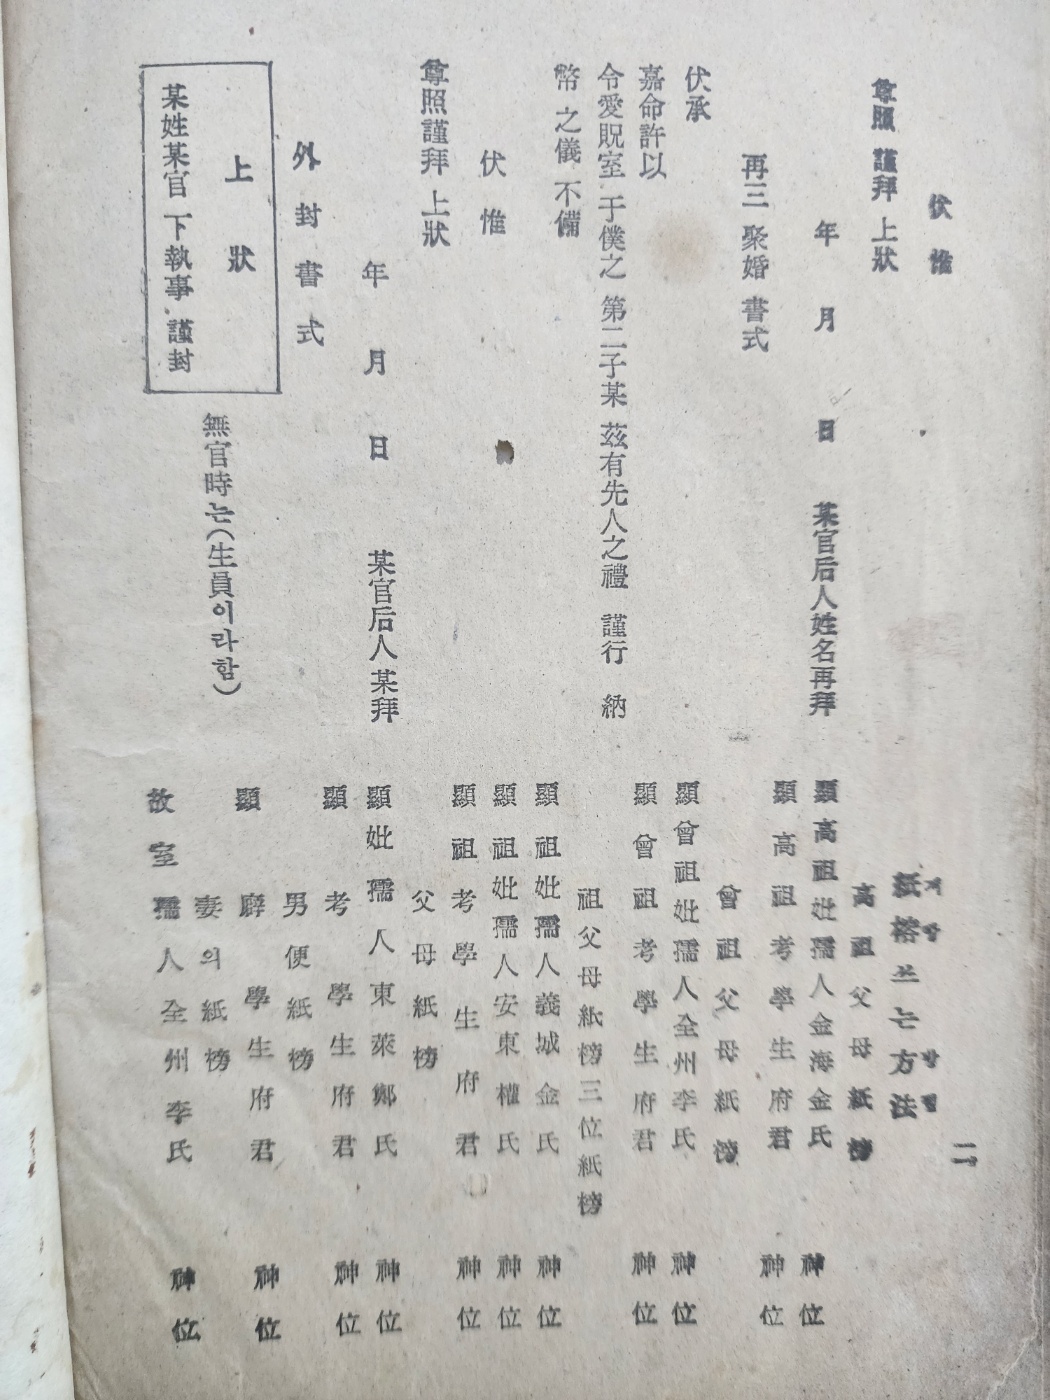 伏惟
尊照 謹拜 上狀
年 月 日 某官后人姓名再拜
再三 聚婚 書式
伏承
嘉命許以
令愛貺室 于僕之 第二子某 茲有先人之禮 謹行 納
幣 之儀 不備
伏惟
尊照謹拜 上狀
年 月 日 某官后人 某拜
外封書式
上狀
某姓某官 下執事 謹封
無官時는(生員이라함)
二
지방 방법
紙榜 쓰는 方法
高祖父母紙榜
顯高祖妣孺人金海金氏 神位
顯高祖考學生府君 神位
曾祖父母紙榜
顯曾祖妣孺人全州李氏 神位
顯曾祖考學生府君 神位
祖父母紙榜三位紙榜
顯祖妣孺人義城金氏 神位
顯祖妣孺人安東權氏 神位
顯祖考學生府君 神位
父母紙榜
顯妣孺人東萊鄭氏 神位
顯考學生府君 神位
男便紙榜
顯辟學生府君 神位
妻의紙榜
故室孺人全州李氏 神位